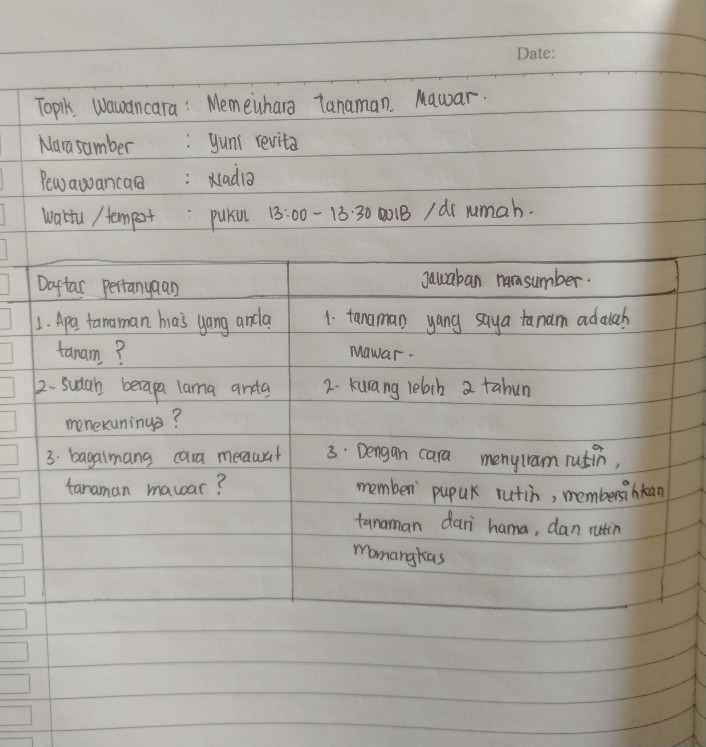 Date:
Topik Wawancara : Memeuhara tanaman Mawar.
Narasumber : yuni revita
Pewawancara : Nadia
Waktu / tempat : pukul 13:00 - 13.30 WIB / di rumah.
Daftar pertanyaan
Jawaban narasumber.
1. Apa tanaman hias yang anda
tanam ?
1. tanaman yang saya tanam adalah
Mawar.
2- Sudah berapa lama anda
menekuninya ?
2. kurang lebih 2 tahun
3. bagaimana cara merawat
tanaman mawar ?
3. Dengan cara menyiram rutin,
memberi pupuk rutin, membersihkan
tanaman dari hama, dan rutin
Momangkas